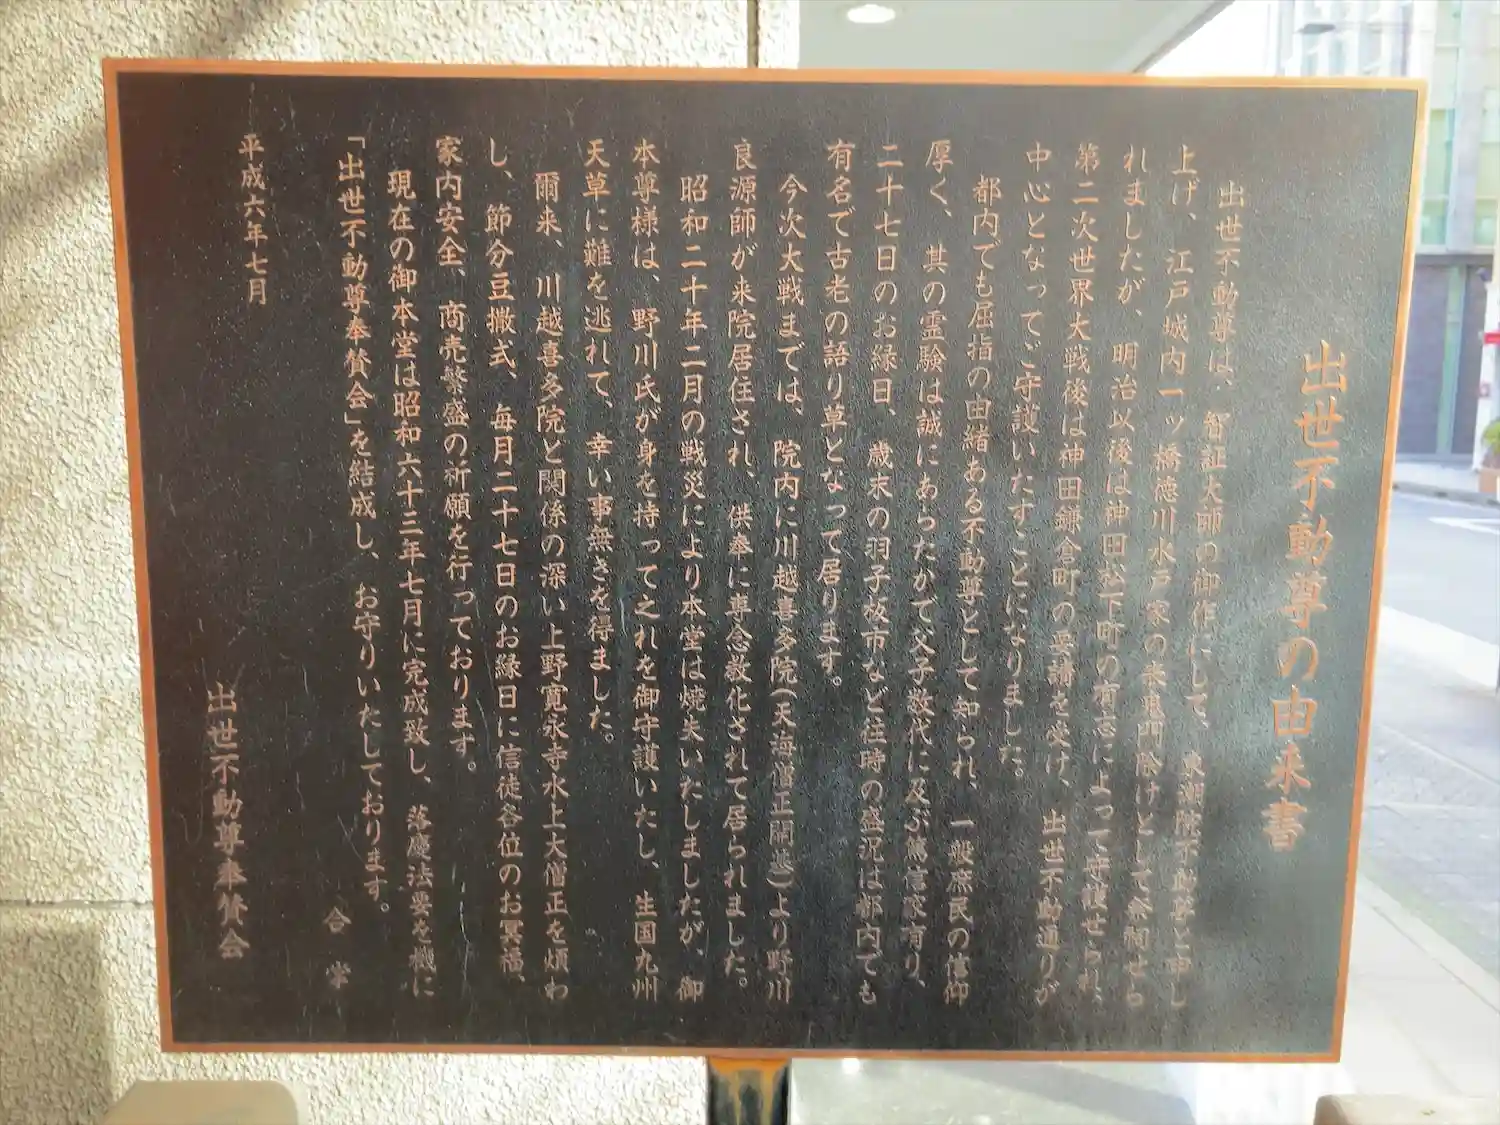 出世不動尊の由来書
出世不動尊は、智証大師の御作にして、東潮院不動尊と申し
上げ、江戸城内一ッ橋徳川水戸家の裏鬼門除けとして祭祠せら
れましたが、明治以後は神田松下町の有志によって守護せられ、
第二次世界大戦後は神田鎌倉町の要請を受け、出世不動通りが
中心となってご守護いたすことになりました。
都内でも屈指の由緒ある不動尊として知られ、一般庶民の信仰
厚く、其の霊験は誠にあらたかで父子数代に及ぶ篤信家有り、
二十七日のお縁日、歳末の羽子板市など往時の盛況は都内でも
有名で古老の語り草となって居ります。
今次大戦までは、院内に川越喜多院(天海僧正開基)より野川
良源師が来院居住され、供奉に専念教化されて居られました。
昭和二十年二月の戦災により本堂は焼失いたしましたが、御
本尊様は、野川氏が身を持って之れを御守護いたし、生国九州
天草に難を逃れて、幸い事無きを得ました。
爾来、川越喜多院と関係の深い上野寛永寺水上大僧正を煩わ
し、節分豆撒式、毎月二十七日のお縁日に信徒各位のお冥福、
家内安全、商売繁盛の祈願を行っております。
現在の御本堂は昭和六十三年七月に完成致し、落慶法要を機に
「出世不動尊奉賛会」を結成し、お守りいたしております。
合掌
平成六年七月
出世不動尊奉賛会